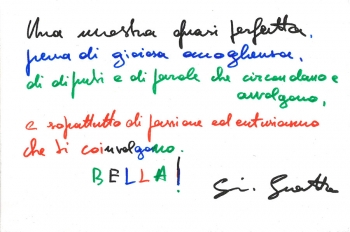 Una mostra quasi perfetta,
piena di gioiosa accoglienza,
di dipinti e di parole che circondano e
avvolgono,
e soprattutto di passione ed entusiasmo
che ti coinvolgono.
BELLA!